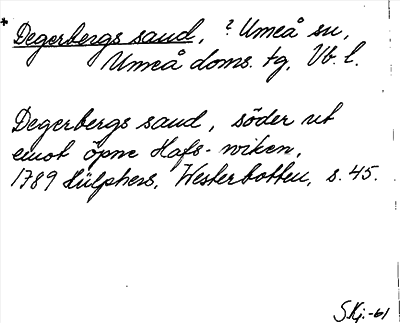 +
Degerbergs sand, ? Umeå sn,
Umeå doms. tg, Vb. l.
Degerbergs sand, söder ut
emot öpne Hafs-wiken,
1789 Hülphers, Westerbotten, s. 45.
S.Kj.-61